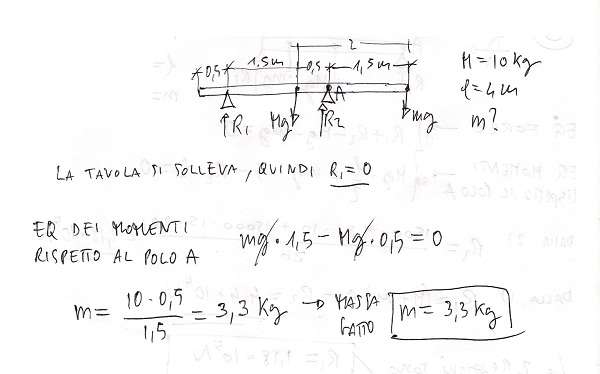 2
0,5 1,5m 0,5 1,5m
M = 10 kg
l = 4 m
m?
A
R₁ Mg R₂ mg
LA TAVOLA SI SOLLEVA, QUINDI R₁ = 0
EQ DEI MOMENTI
RISPETTO AL POLO A
mg · 1,5 − Mg · 0,5 = 0
m = 10 · 0,5 / 1,5 = 3,3 kg → MASSA GATTO m = 3,3 kg